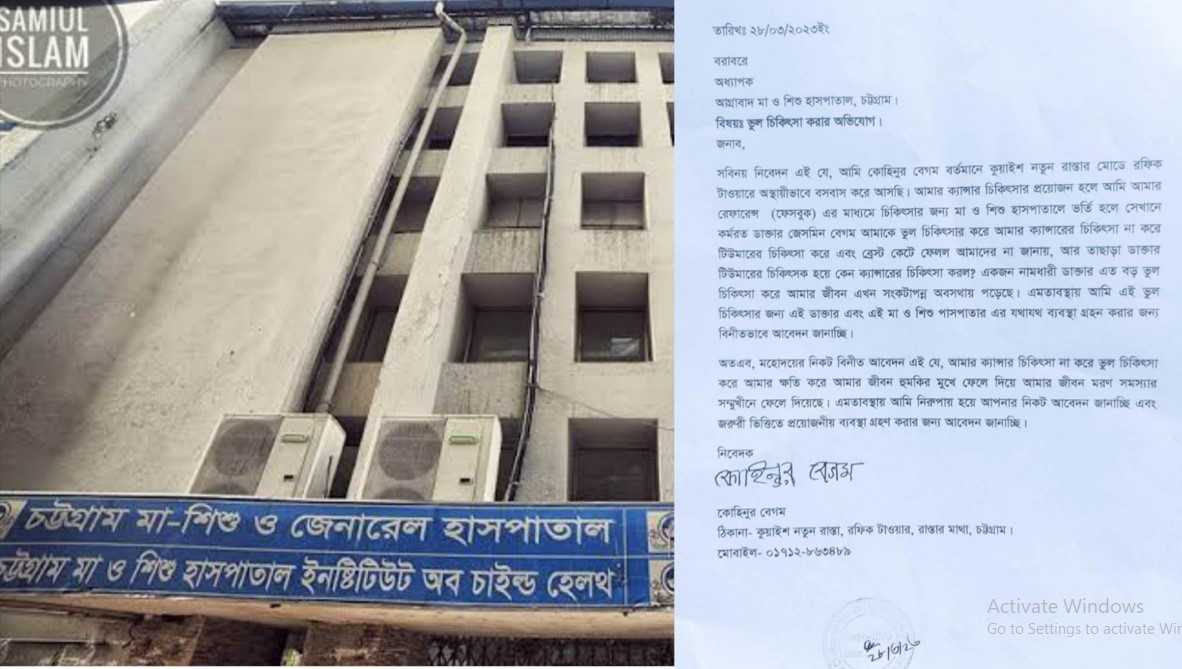 SAMIUL
ISLAM
PHOTOGRAPHY
চট্টগ্রাম মা-শিশু ও জেনারেল হাসপাতাল
চট্টগ্রাম মা ও শিশু হাসপাতাল ইনষ্টিটিউট অব চাইল্ড হেলথ
তারিখঃ ২৮/০৩/২০২৩ইং
বরাবরে
অধ্যাপক
আগ্রাবাদ মা ও শিশু হাসপাতাল, চট্টগ্রাম।
বিষয়ঃ ভুল চিকিৎসা করার অভিযোগ।
জনাব,
সবিনয় নিবেদন এই যে, আমি কোহিনুর বেগম বর্তমানে কুয়াইশ নতুন রাস্তার মোডে রফিক
টাওয়ারে অস্থায়ীভাবে বসবাস করে আসছি। আমার ক্যান্সার চিকিৎসার প্রয়োজন হলে আমি আমার
রেফারেন্স (ফেসবুক) এর মাধ্যমে চিকিৎসার জন্য মা ও শিশু হাসপাতালে ভর্তি হলে সেখানে
কর্মরত ডাক্তার জেসমিন বেগম আমাকে ভুল চিকিৎসার করে আমার ক্যান্সারের চিকিৎসা না করে
টিউমারের চিকিৎসা করে এবং ব্রেস্ট কেটে ফেলল আমাদের না জানায়, আর তাছাড়া ডাক্তার
টিউমারের চিকিৎসক হয়ে কেন ক্যান্সারের চিকিৎসা করল? একজন নামধারী ডাক্তার এত বড় ভুল
চিকিৎসা করে আমার জীবন এখন সংকটাপন্ন অবসথায় পড়েছে। এমতাবস্থায় আমি এই ভুল
চিকিৎসার জন্য এই ডাক্তার এবং এই মা ও শিশু পাসপাতার এর যথাযথ ব্যবস্থা গ্রহন করার জন্য
বিনীতভাবে আবেদন জানাচ্ছি।
অতএব, মহোদয়ের নিকট বিনীত আবেদন এই যে, আমার ক্যান্সার চিকিৎসা না করে ভুল চিকিৎসা
করে আমার ক্ষতি করে আমার জীবন হুমকির মুখে ফেলে দিয়ে আমার জীবন মরণ সমস্যার
সম্মুখীনে ফেলে দিয়েছে। এমতাবস্থায় আমি নিরুপায় হয়ে আপনার নিকট আবেদন জানাচ্ছি এবং
জরুরী ভিত্তিতে প্রয়োজনীয় ব্যবস্থা গ্রহণ করার জন্য আবেদন জানাচ্ছি।
নিবেদক
কোহিনুর বেগম
কোহিনুর বেগম
ঠিকানা- কুয়াইশ নতুন রাস্তা, রফিক টাওয়ার, রাস্তার মাথা, চট্টগ্রাম।
মোবাইল- ০১৭১২-৮৬৩৪৮৯
Activate Windows
Go to Settings to activate Wi
২৮/৩/২৩